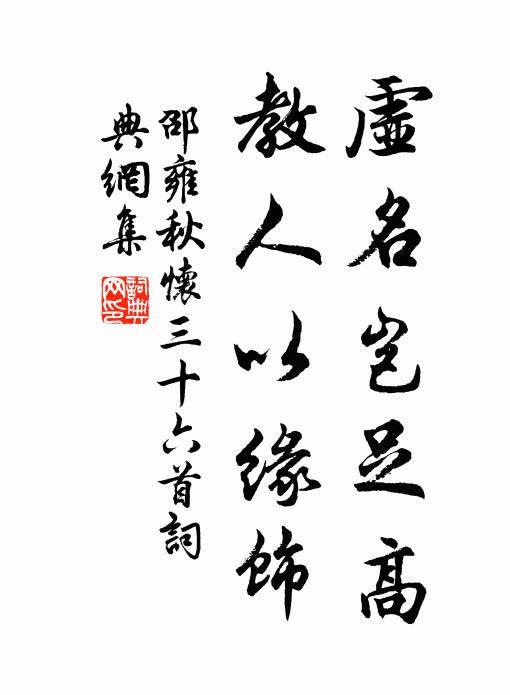 虛名豈足高
教人以緣飾
邵雍秋懷三十六首詞
典網集
詞典網印